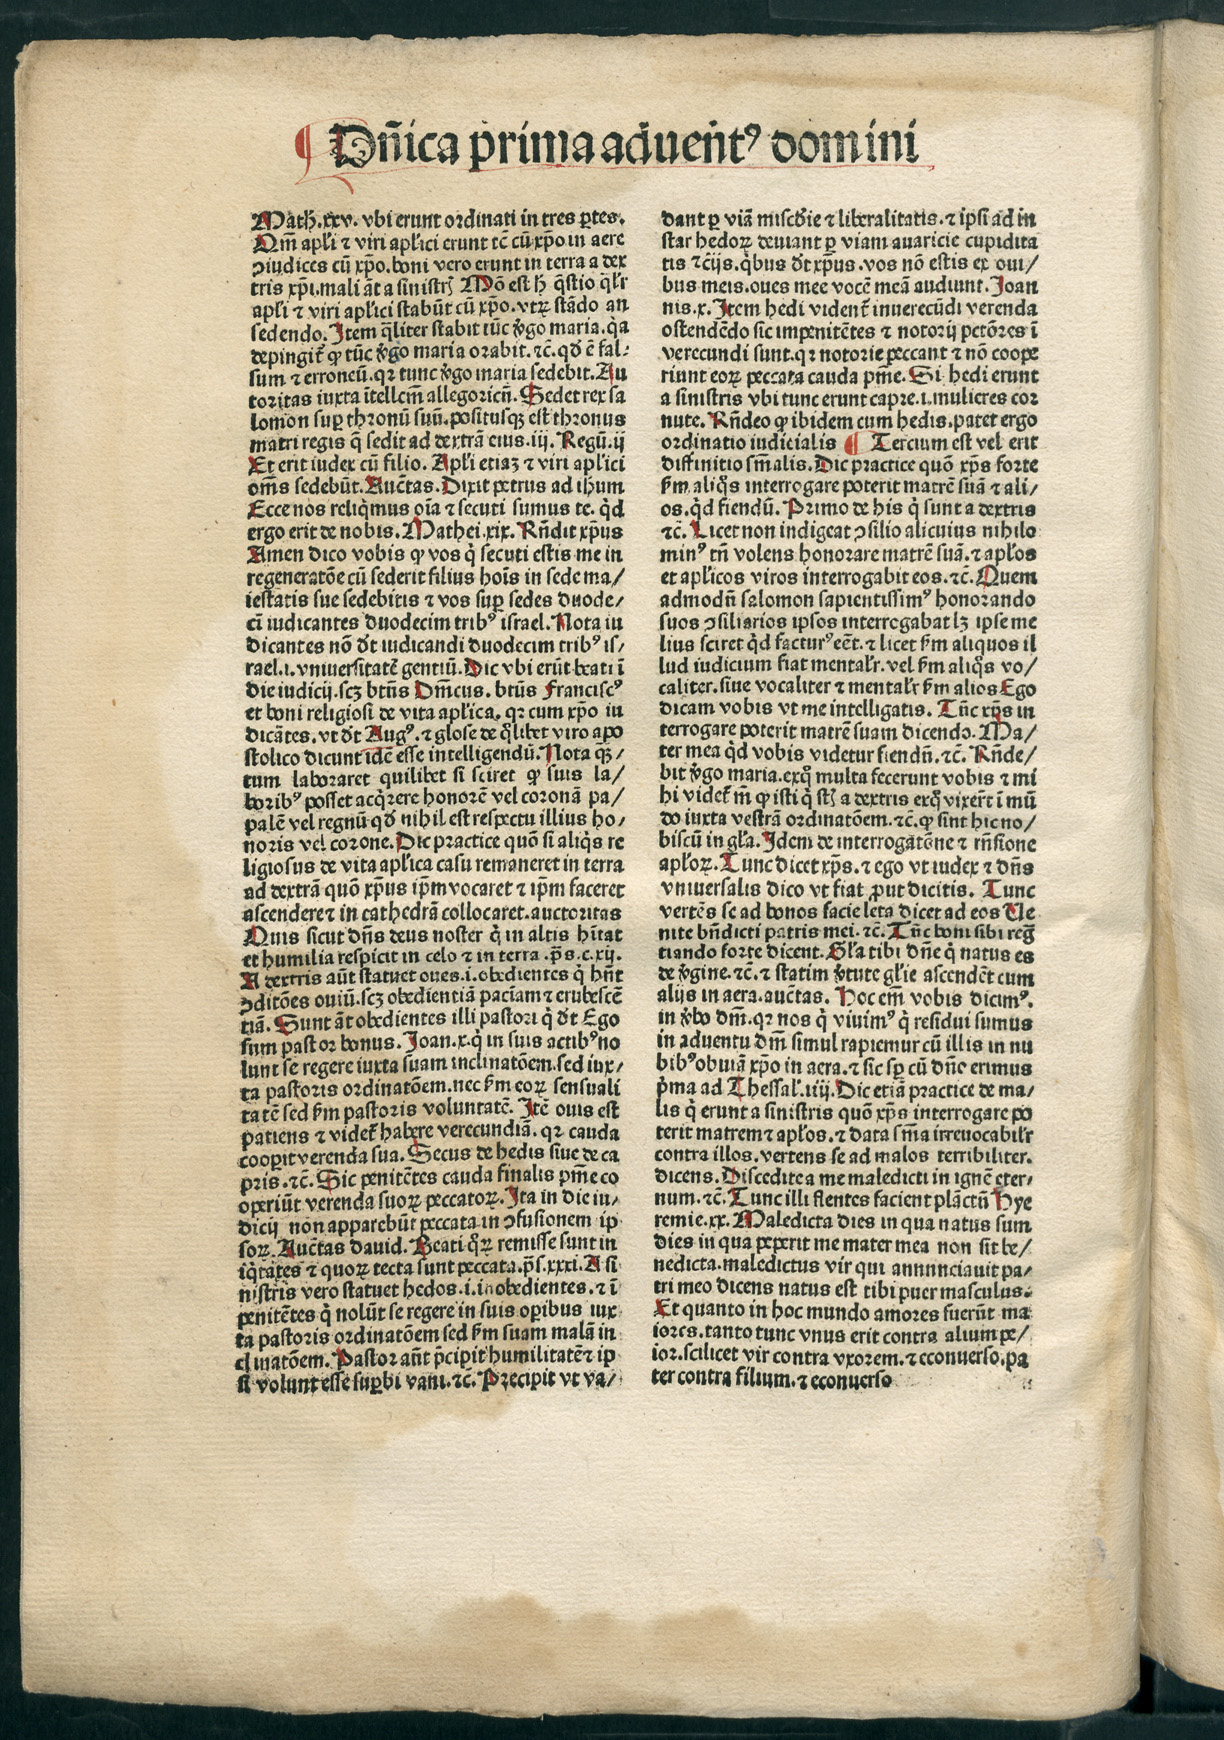 ¶ Dn̄ica prima aduen̄tꝰ domini
Math̄.xxv. vbi erunt ordinati in tres ꝑtes.
Om̄ apl̄i ⁊ viri apl̄ici erunt tc̄ cū xp̄o in aere
ꝯiudices cū xp̄o. boni vero erunt in terra a dex
tris xp̄i. mali āt a sinistrꝭ Mō est h̄ q̄stio q̄lr̄
apl̄i ⁊ viri apl̄ici stabūt cū xp̄o. vtꝝ stādo an
sedendo. Item q̄liter stabit tūc v̓go maria. q̓a
depingit̄ ꝙ tūc v̓go maria orabit. ⁊c̄. qd̓ ē fal-
sum ⁊ erroneū. qꝛ tunc v̓go maria sedebit. Au
toritas iuxta ītellcm̄ allegoricū. Sedet rex sa
lomon suꝑ thronū suū. positusqꝫ est thronus
matri regis q̄ sedit ad dextrā eius. iij. Regū. ij
Et erit iudex cū filio. Apl̄i etiaꝫ ⁊ viri apl̄ici
om̄s sedebūt. Auc̄tas. Dixit petrus ad ihum
Ecce nos reliq̓mus oīa ⁊ secuti sumus te. q̓d
ergo erit de nobis. Mathei. xix. Rn̄dit xp̄us
Amen dico vobis ꝙ vos q̓ secuti estis me in
regeneratōe cū sederit filius hoīs in sede ma/
iestatis sue sedebitis ⁊ vos suꝑ sedes duode/
cī iudicantes duodecim tribꝰ israel. Nota iu
dicantes nō d̓t iudicandi duodecim tribꝰ is/
rael. i. vniuersitatē gentiū. Dic vbi erūt beati ī
die iudicij. scꝫ bt̄us Dm̄cus. bt̄us Franciscꝰ
et boni religiosi de vita apl̄ica. qꝛ cum xp̄o iu
dicātes. vt d̓t Augꝰ. ⁊ glose de q̓libet viro apo
stolico dicunt idē esse intelligendū. Nota qꝫ/
tum laboraret quilibet si sciret ꝙ suis la/
boribꝰ posset acq̓rere honorē vel coronā pa/
palē vel regnū qd̓ nihil est respectu illius ho/
noris vel corone. Dic practice quō si aliq̓s re
ligiosus de vita apl̄ica casu remaneret in terra
ad dextrā quō xp̄us ip̄m vocaret ⁊ ip̄m faceret
ascendere ⁊ in cathedrā collocaret. auctoritas
Quis sicut dn̄s deus noster q̓ in altis hītat
et humilia respicit in celo ⁊ in terra. p̄s. c. xij.
A dextris aūt statuet oues. i. obedientes q̓ hn̄t
ꝯditōes ouiū. scꝫ obedientiā paciam̄ ⁊ erubescē
tiā. Sunt āt obedientes illi pastori q̓ d̓t Ego
sum pastor bonus. Joan. x. q̓ in suis actibꝰ no
lunt se regere iuxta suam inclinatōem. sed iux/
ta pastoris ordinatōem. nec ẜm eoꝝ sensuali
tatē sed ẜm pastoris voluntatē. Itē ouis est
patiens ⁊ videt̄ habere verecundiā. qꝛ cauda
cooꝑit verenda sua. Secus de hedis siue de ca
pris. ⁊c̄. Sic penitētes cauda finalis pn̄ie co
operiūt verenda suoꝝ peccatoꝝ. Ita in die iu/
dicij non apparebūt peccata in ꝯfusionem ip
soꝝ. Auc̄tas dauid. Beati q̓ꝝ remisse sunt in
iq̓tates ⁊ quoꝝ tecta sunt peccata. p̄s. xxxi. A si
nistris vero statuet hedos. i. inobedientes. ⁊ ī
penitētes q̓ nolūt se regere in suis oꝑibus iux
ta pastoris ordinatōem sed ẜm suam malā in
clinatōem. Pastor aūt p̄cipit humilitatē ⁊ ip
si volunt esse suꝑbi vani. ⁊c̄. Precipit vt va/
dant ꝑ viā misc̄die ⁊ liberalitatis. ⁊ ipsi ad in
star hedoꝝ deuiant ꝑ viam auaricie cupidita
tis ⁊c̄ijs. q̓bus d̓t xp̄us. vos nō estis ex oui/
bus meis. oues mee vocē meā audiunt. Joan
nis. x. Item hedi vident̄ inuerecūdi verenda
ostendēdo sic impenitētes ⁊ notorij pctōres ī
verecundi sunt. qꝛ notorie peccant ⁊ nō coope
riunt eoꝝ peccata cauda pn̄ie. Si hedi erunt
a sinistris vbi tunc erunt capre. i. mulieres cor
nute. Rn̄deo ꝙ ibidem cum hedis. patet ergo
ordinatio iudicialis ¶ Tercium est vel erit
diffinitio sn̄ialis. Dic practice quō xp̄s forte
ẜm aliq̓s interrogare poterit matrē suā ⁊ ali/
os. q̓d fiendū. Primo de his q̓ sunt a dextris
⁊c̄. Licet non indigeat ꝯsilio alicuius nihilo
minꝰ tn̄ volens honorare matrē suā. ⁊ apl̄os
et apl̄icos viros interrogabit eos. ⁊c̄. Quem
admodū salomon sapientissimꝰ honorando
suos ꝯsiliarios ipsos interrogabat lꝫ ipse me
lius sciret q̓d facturꝰ eēt. ⁊ licet ẜm aliquos il
lud iudicium fiat mentalr̄. vel ẜm aliq̓s vo/
caliter. siue vocaliter ⁊ mentalr̄ ẜm alios Ego
dicam vobis vt me intelligatis. Tūc xp̄s in
terrogare poterit matrē suam dicendo. Ma/
ter mea q̓d vobis videtur fiendū. ⁊c̄. Rn̄de/
bit v̓go maria. exq̓ multa fecerunt vobis ⁊ mi
hi videt̄ m̄ ꝙ isti q̓ st̄ a dextris exq̓ vixer̄t ī mū
do iuxta vestrā ordinatōem. ⁊c̄. ꝙ sint hic no/
biscū in gl̄a. Idem de interrogatōne ⁊ rn̄sione
apl̄oꝝ. Tunc dicet xp̄s. ⁊ ego vt iudex ⁊ dn̄s
vniuersalis dico vt fiat ꝓut dicitis. Tunc
vertēs se ad bonos facie leta dicet ad eos Ve
nite bn̄dicti patris mei. ⁊c̄. Tūc boni sibi reg̃
tiando forte dicent. Gl̄a tibi dn̄e q̓ natus es
de v̓gine. ⁊c̄. ⁊ statim v̓tute gl̄ie ascendēt cum
alijs in aera. auc̄tas. Hoc em̄ vobis dicimꝰ.
in v̓bo dn̄i. qꝛ nos q̓ viuimꝰ q̓ residui sumus
in aduentu dn̄i simul rapiemur cū illis in nu
bibꝰ obuiā xp̄o in aera. ⁊ sic sꝑ cū dn̄o erimus
p̓ma ad Thessal̄. iiij. Dic etiā practice de ma/
lis q̓ erunt a sinistris quō xp̄s interrogare po
terit matrem ⁊ apl̄os. ⁊ data sn̄ia irreuocabilr̄
contra illos. vertens se ad malos terribiliter.
dicens. Discedite a me maledicti in ignē eter/
num. ⁊c̄. Tunc illi flentes facient plāctū Hye
remie. xx. Maledicta dies in qua natus sum
dies in qua peperit me mater mea non sit be/
nedicta. maledictus vir qui annnnciauit pa/
tri meo dicens natus est tibi puer masculus.
Et quanto in hoc mundo amores fuerūt ma
iores. tanto tunc vnus erit contra alium pe/
ior. scilicet vir contra vxorem. ⁊ econuerso. pa
ter contra filium. ⁊ econuerso